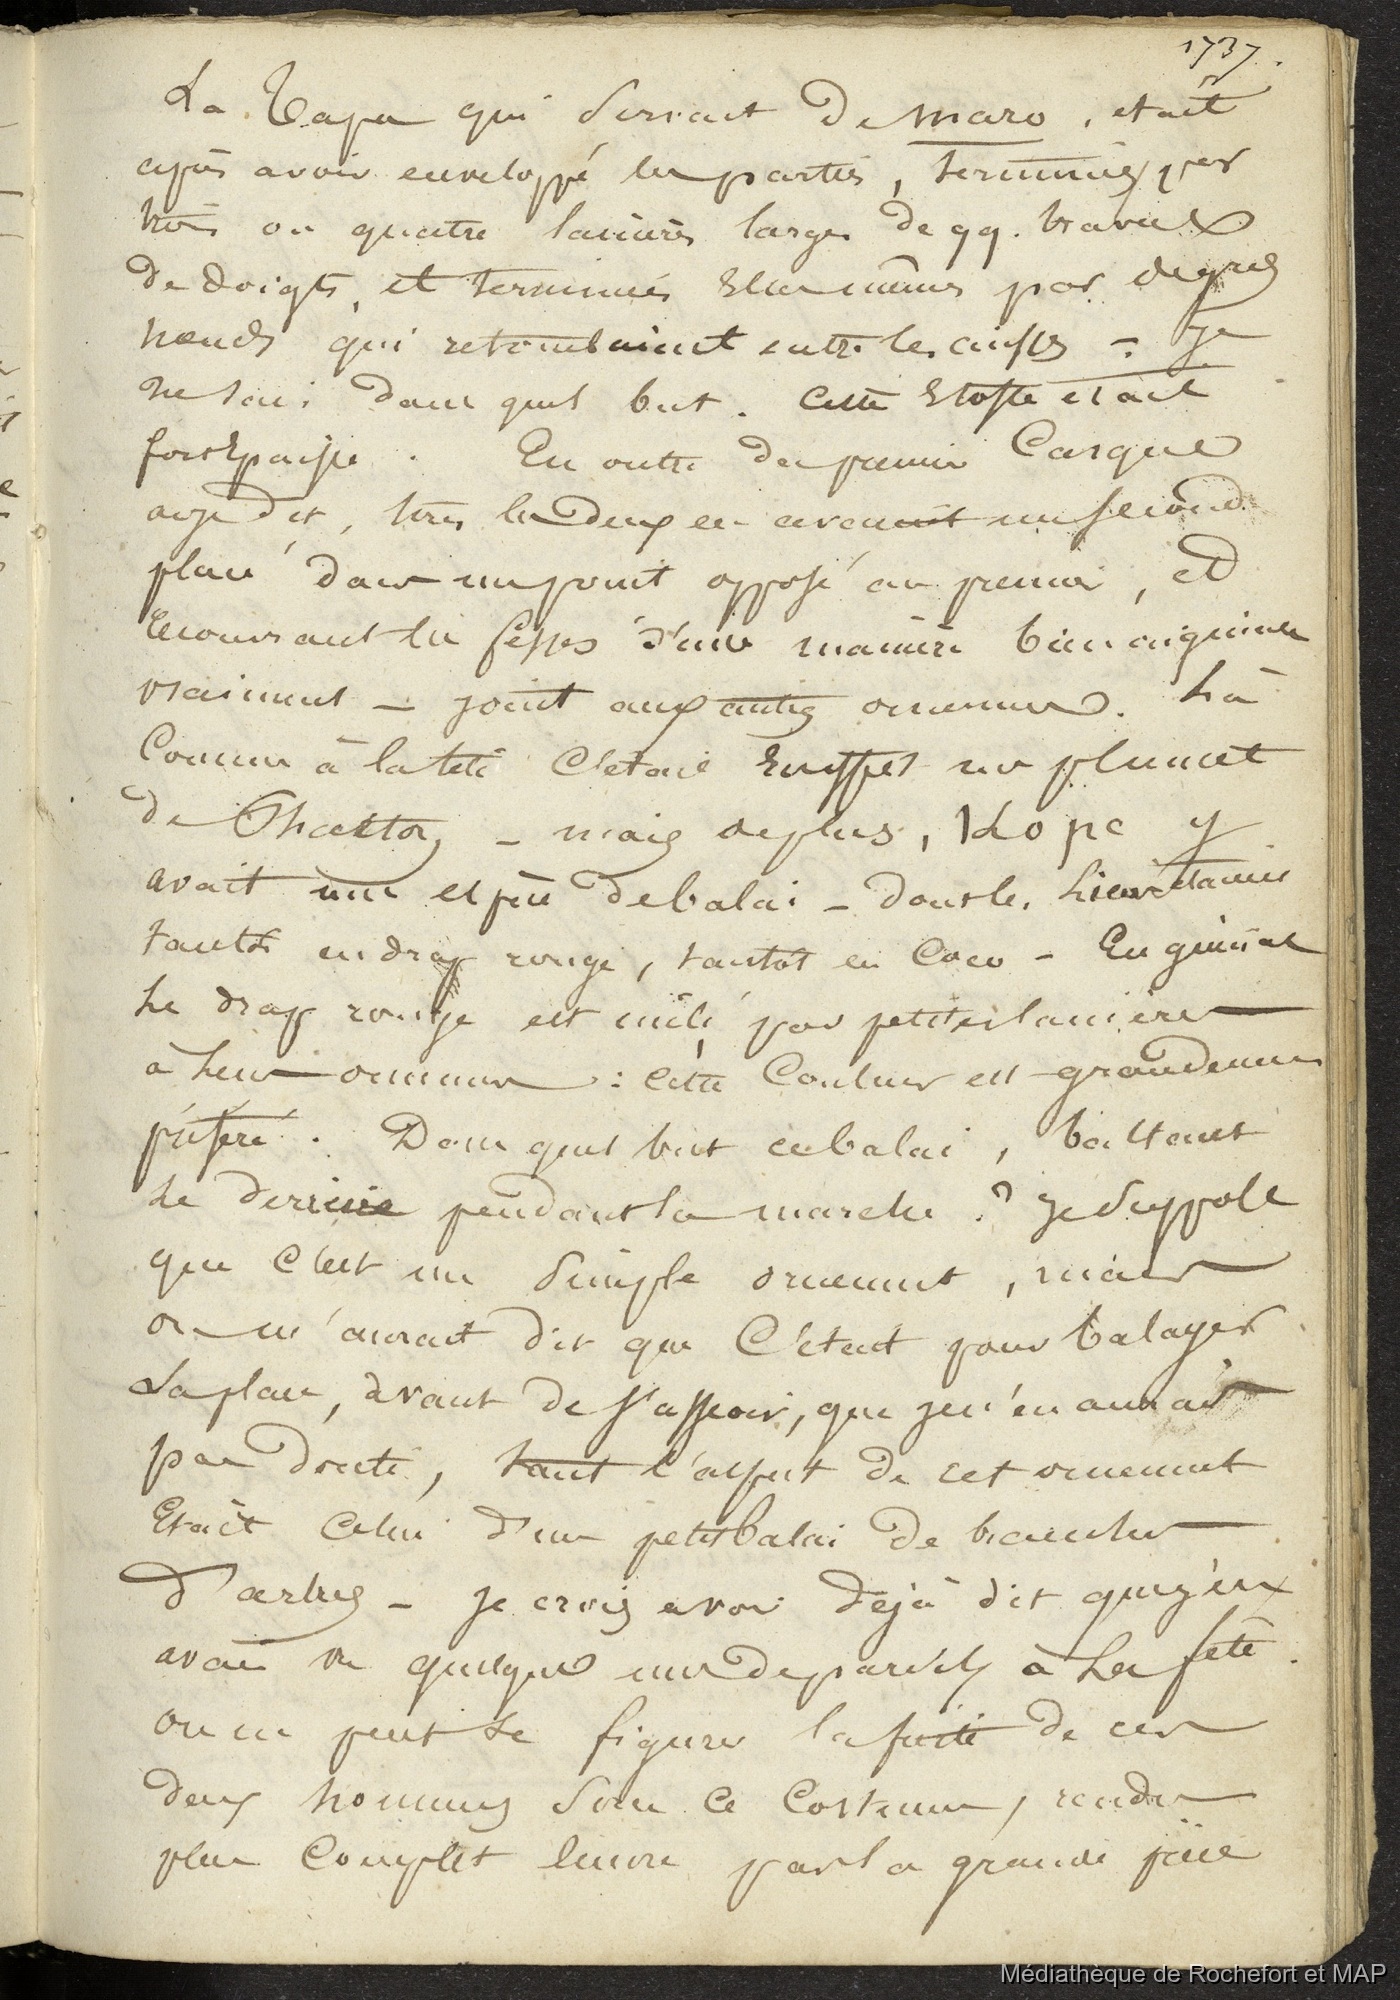 1737.
La Tapa qui servait de maro, était
après avoir enveloppé les parties, terminée par
trois ou quatre lanières larges de qq. travers
de doigts, et terminées elles mêmes par de gros
nœuds qui retombaient entre les cuisses - Je
ne sais dans quel but. Cette Etoffe était
fort Epaisse. En outre du premier Casque
ai je dit, tous les deux en avaient un second
placé dans un point opposé au premier, et
recouvrant les fesses d'une manière bien
vraiment - joint aux autres ornemens. Là
Comme à la tête C'était En effet un plumet
de Phaeton - mais de plus, Hope y
avait une espèce de balai - dont les lanières
tantôt en drap rouge, tantôt en Coco - En général
le drap rouge est mêlé par petites lanières
à leurs ornemens : cette Couleur est grandement
préféré. Dans quel but ce balai, battant
le derriere pendant la marche ? Je suppose
que C'est un simple ornement, mais
on m'aurait dit que C'était pour balayer
La place, avant de s'asseoir, que je n'en aurais
pas douté, tant l'aspect de cet ornement
Etait Celui d'un petit balai de branches
d'arbres - Je crois avoir déjà dit que j'en
avais vu quelques uns de pareils à la fête.
On ne peut se figurer la fierté de ces
deux hommes sous ce Costume, rendu
plus Complet encore par la grande pièce